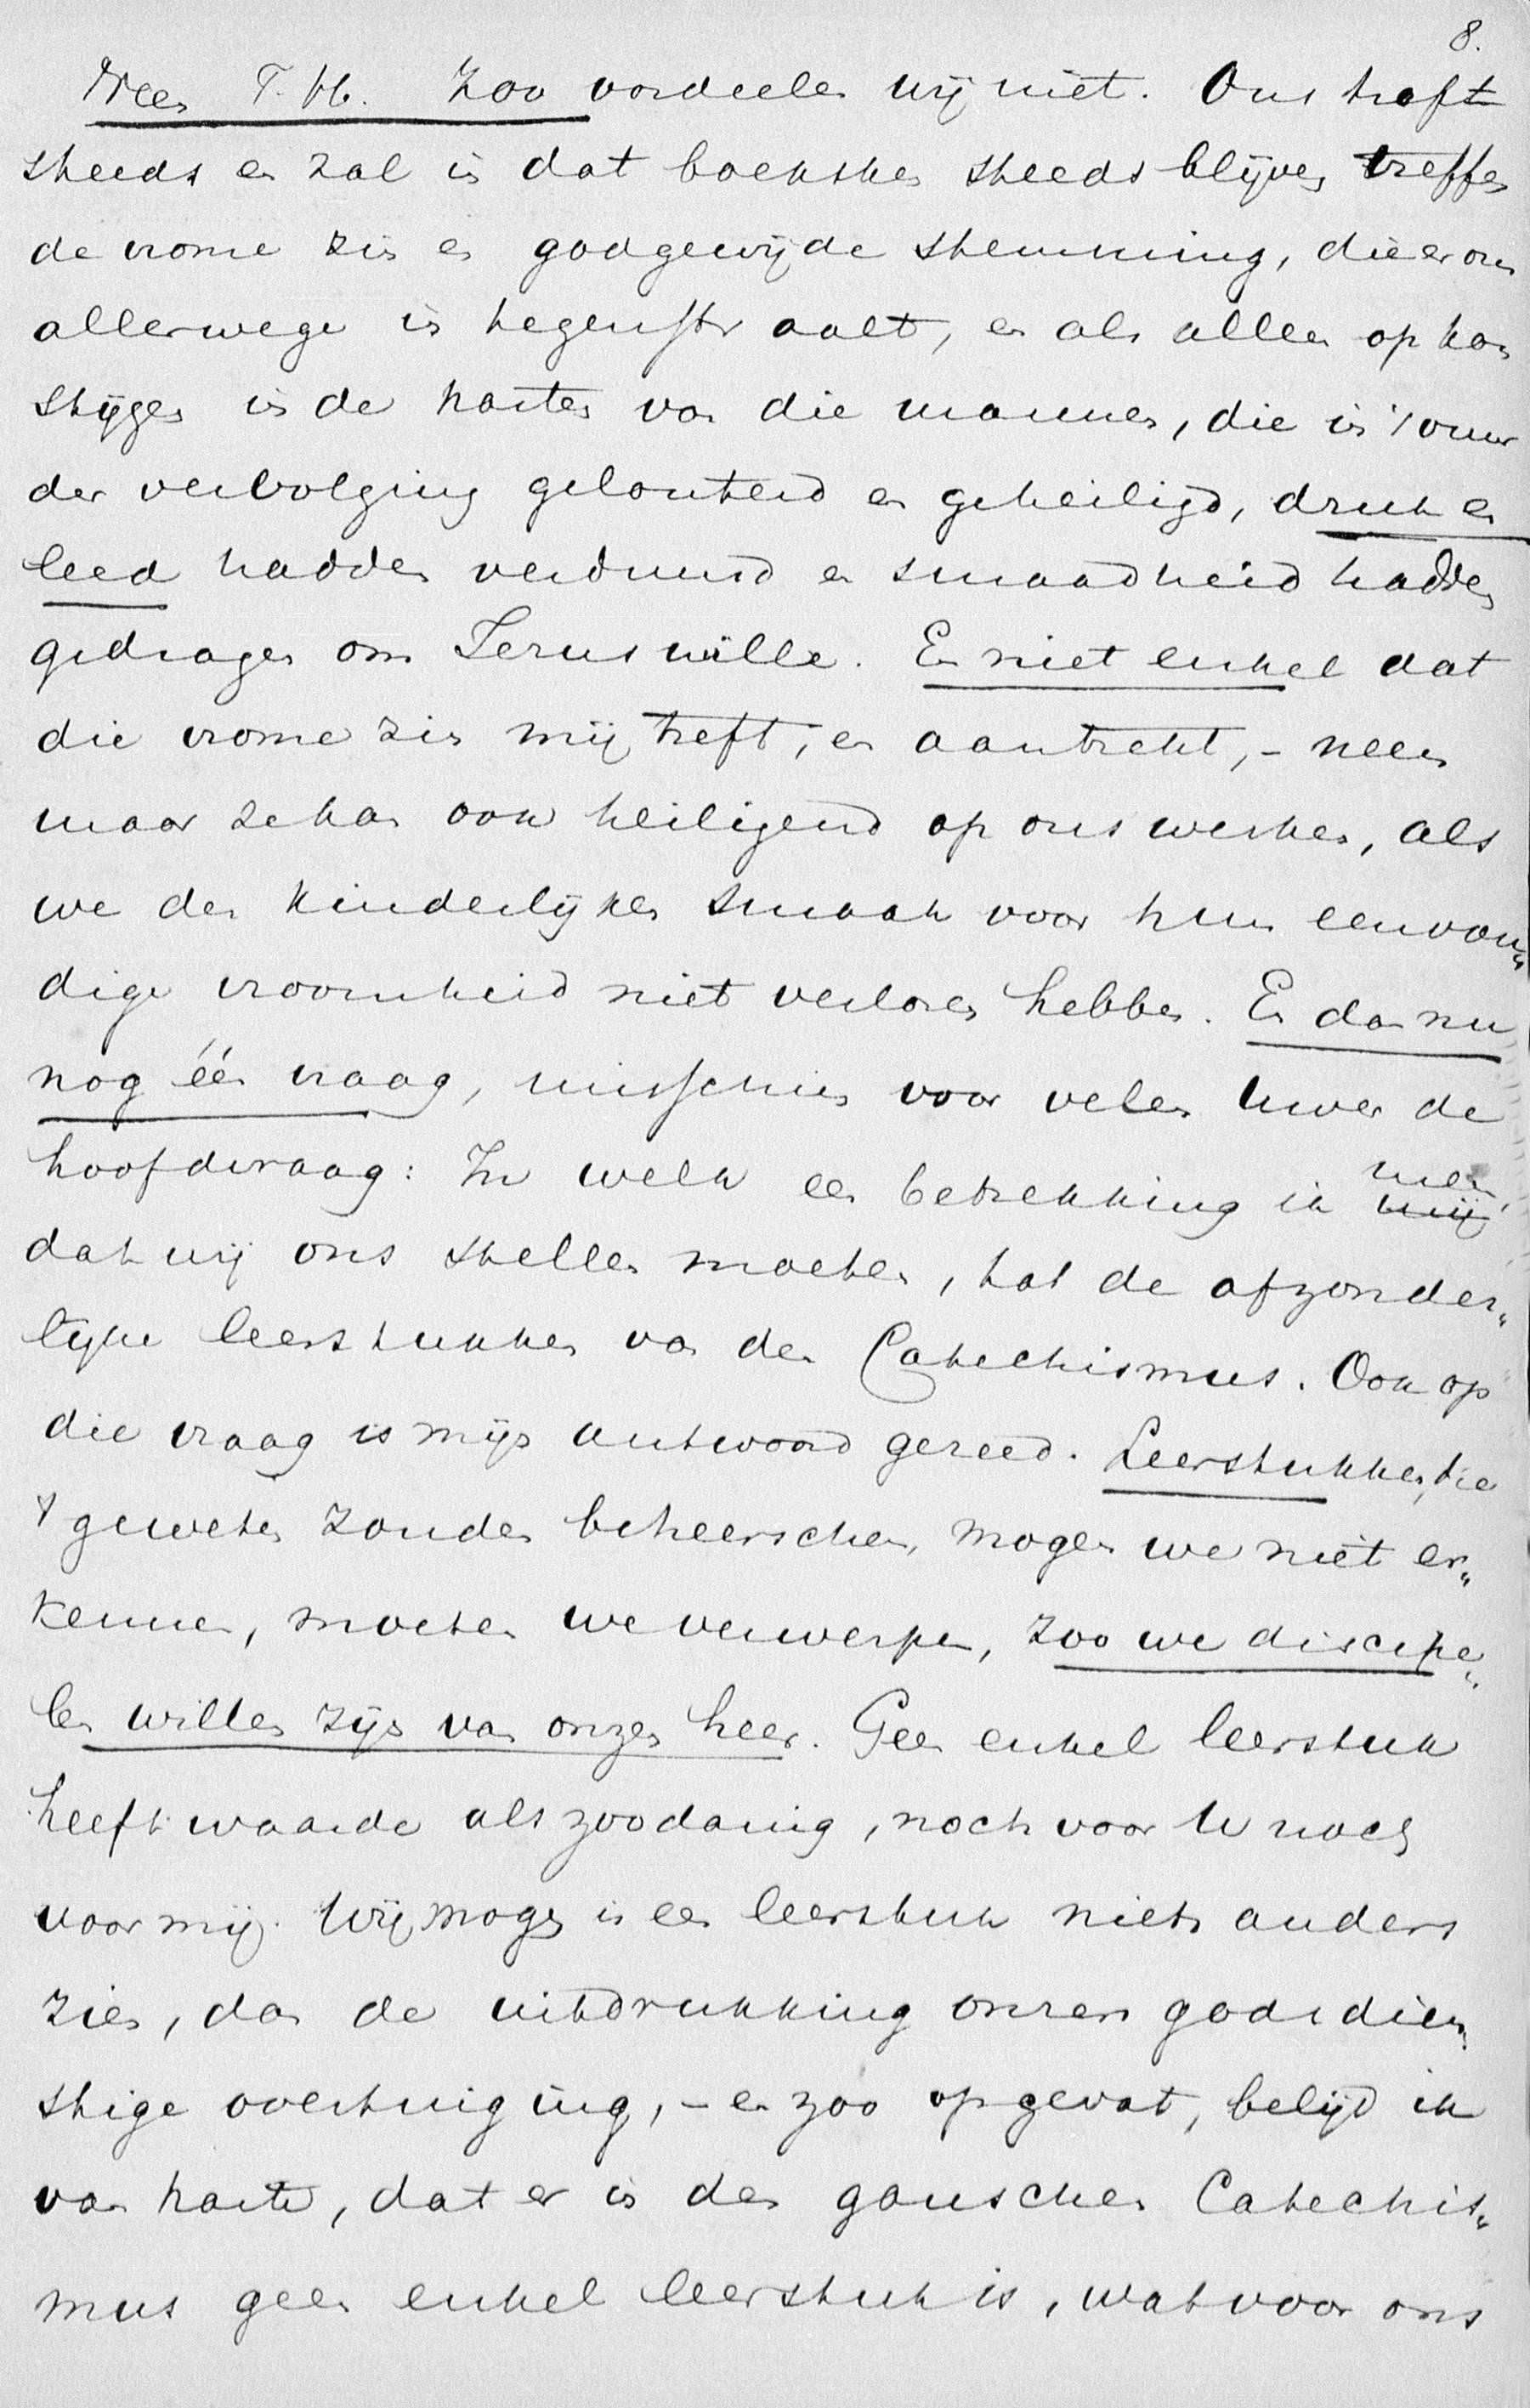 8.
Neen T. H. Zoo oordeelen wij niet. Ons treft
steeds en zal in dat boekske steeds blijven treffen
de vrome zin en godgewijde stemming, die er ons
allerwege in tegenstraalt, en als alleen op kon
stijgen in de harten van die mannen, die in 't vuur
der vervolging gelouterd en geheiligd, druk en
leed hadden verduurd en smaadheid hadden
gedragen om Jezus wille. En niet enkel dat
die vrome zin mij treft, en aantrekt, – neen
maar ze kan ook heiligend op ons werken, als
we den kinderlijken smaak voor hun eenvou„
dige vroomheid niet verloren hebben. En dan nu
nog één vraag, misschien voor velen Uwer de
hoofdvraag: In welk een betrekking ik meen,
dat wij ons stellen moeten, tot de afzonder„
lijke leerstukken van den Catechismus. Ook op
die vraag is mijn antwoord gereed. Leerstukken, die
't geweten zouden beheerschen, mogen we niet er„
kennen, moeten we verwerpen, zoo we discipe„
len willen zijn van onzen heer. Geen enkel leerstuk
heeft waarde als zoodanig, noch voor U noch
voor mij. Wij mogen in een leerstuk niets anders
zien, dan de uitdrukking onzer godsdien„
stige overtuiging, – en zoo opgevat, belijd ik
van harte, dat er in den ganschen Catechis„
mus geen enkel leerstuk is, wat voor ons